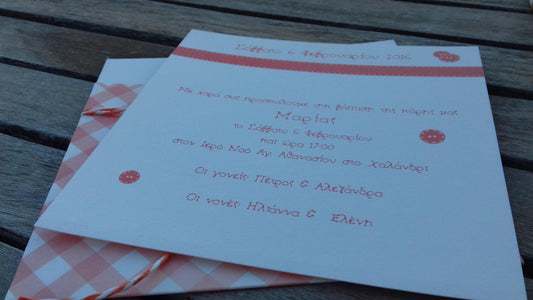 Σάββατο 6 Φεβρουαρίου 2016
Με χαρά σας προσκαλούμε στη βάπτιση της κόρης μας
Μαρίας
το Σάββατο 6 Φεβρουαρίου
και ώρα 17:00
στον Ιερό Ναό Αγ. Αθανασίου στο Χαλάνδρι
Οι γονείς Πέτρος & Αλεξάνδρα
Οι νονές Ηλιάννα & Ελένη